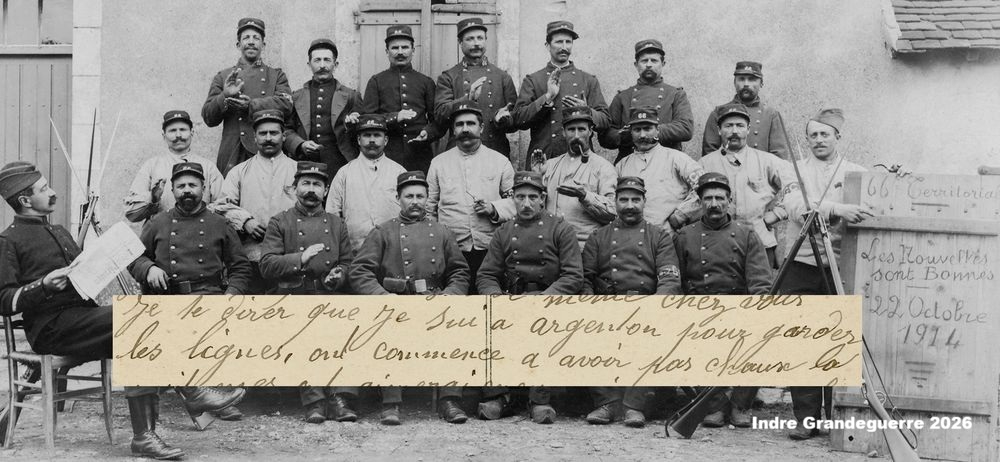 66e Territorial
Les Nouvelles
sont Bonnes
22 Octobre
1914
même chez vous
Je te dirér que je sui a argenton pour garder
les lignes, ont commence a avoir pas chaux la
Indre Grandeguerre 2026